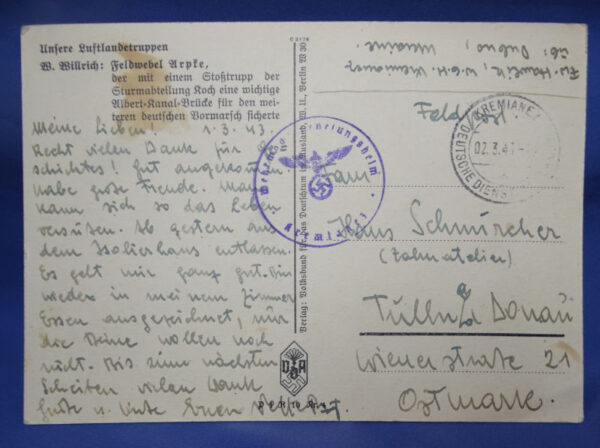 Unsere Luftlandetruppen
W. Willrich: Feldwebel Arpke,
der mit einem Stoßtrupp der
Sturmabteilung Koch eine wichtige
Albert-Kanal-Brücke für den wei-
teren deutschen Vormarsch sicherte
Meine Lieben! 1.3.43.
Recht vielen Dank für Ge-
schicktes! Gut angekommen
habe große Freude. Man
kann sich so das Leben
versüßen. Ab gestern aus
dem Isolierhaus entlassen.
Es geht mir ganz gut. Bin
wieder in meinem Zimmer
Essen ausgezeichnet, nur
die Beine wollen noch
nicht. Bis zum nächsten
Schreiben vielen Dank
Grüße u. Euer
C 2176
Verlag: Volksbund für das Deutschtum im Ausland, W. U., Berlin W 30
VDA
Ukraine
Dubno,
Feldpost
KREMIANEZ
02.3.4
DEUTSCHE DIENST
Fam
Hans Schmircher
(Zahnatelier)
Tulln a/Donau
Wienerstraße 21
Ostmark.